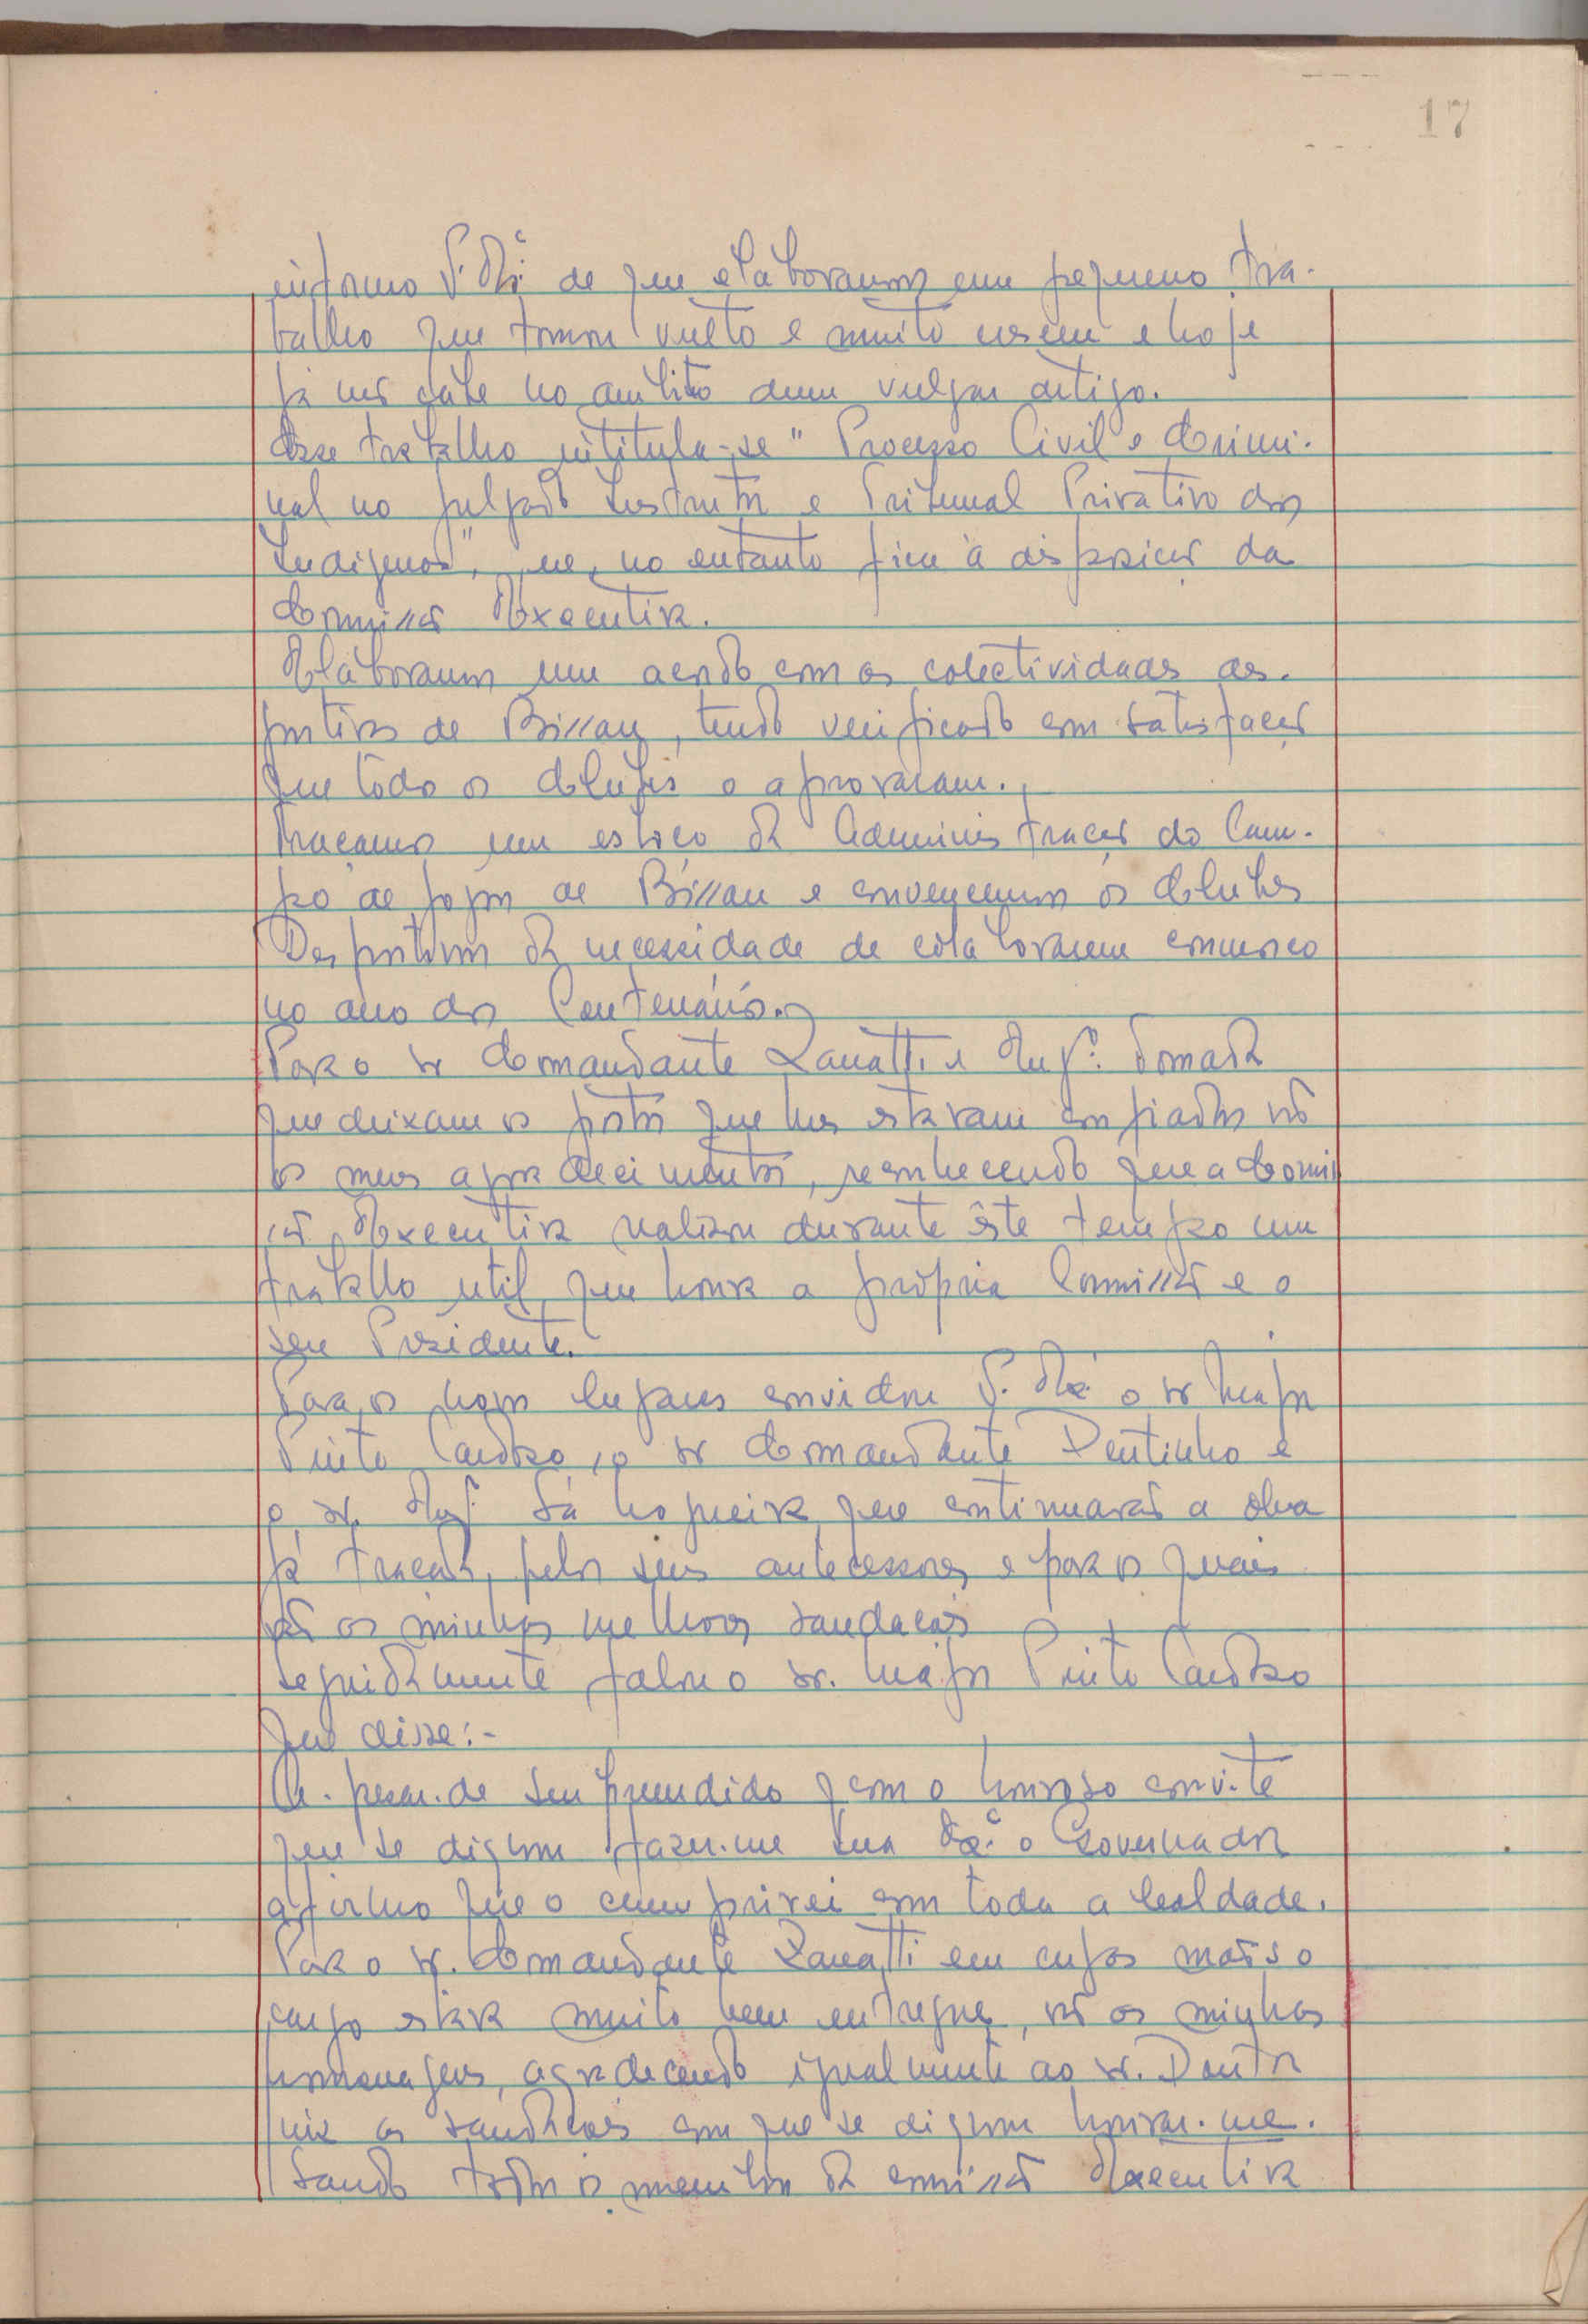 17
informo S. Ex.ª de que elaboramos um pequeno tra-
balho que tomou vulto e muito cresceu e hoje
já não cabe no âmbito dum vulgar artigo.
Esse trabalho intitula-se "Processo Civil e Crimi-
nal no julgado Instrutor e Tribunal Privativo dos
Indigenas", que, no entanto fica à disposição da
Comissão Executiva.
Elaboramos um acordo com as colectividades des-
portivas de Bissau, tendo verificado com satisfação
que todo os Clubes o aprovaram.
Traçamos um esboço da Administração do Cam-
po de jogos de Bissau e convencemos os Clubes
Desportivos da necessidade de colaborarem connosco
no ano dos Centenários.
Para o sr Comandante Zanatti e Eng.º Tomada
que deixam os postos que lhes estavam confiados vão
os meus agradecimentos, reconhecendo que a Comis
são Executiva realizou durante êste tempo um
trabalho util, que honra a própria Comissão e o
seu Presidente.
Para os novos lugares convidou S. Exª o sr Major
Pinto Cardoso, o sr Comandante Dentinho e
o sr. Eng.º Sá Nogueira que continuarão a obra
já traçada, pelos seus antecessores e para os quais
vão as minhas melhores saudações
Seguidamente falou o sr. Major Pinto Cardoso
que disse:-
A-pesar-de surpreendido com o honroso convite
que se dignou fazer-me Sua Ex.ª o Governador
afirmo que o cumprirei com toda a lealdade.
Para o sr. Comandante Zanatti em cujas mãos o
cargo estava muito bem entregue, vão as minhas
homenagens, agradecendo igualmente ao sr. Doutor
as saudações com que se dignou honrar-me.
Saudo todos os membros da comissão Executiva